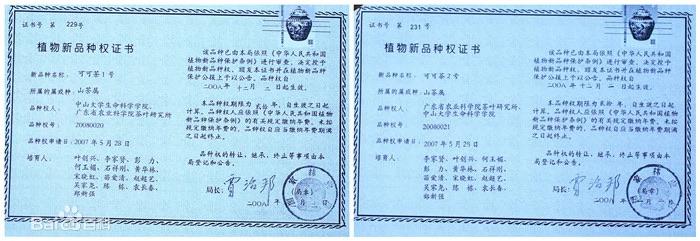 证书号 第 229号
植物新品种权证书
新品种名称：可可茶1号
所属的属或种：山茶属
品种权人：中山大学生命科学学院、
广东省农业科学院茶叶研究所
品种权号：20080020
品种权申请日：2007年5月28日
培育人：叶创兴、李家贤、彭力、
何玉媚、石祥刚、黄华林、
宋晓虹、苗爱清、赵超艺、
吴家尧、陈栋、袁长春、
郑新强
该品种已由本局依照《中华人民共和国
植物新品种保护条例》进行审查，决定授予
植物新品种权，颁发本证书并在植物新品种
保护公报上予以公告。品种权自
生效。
本品种权期限为贰拾年，自生效之日起
计算。品种权人应依照《中华人民共和国植
物新品种保护条例》的有关规定缴纳年费。未按
规定缴纳年费的，品种权自应当缴纳年费期满
之日起终止。
品种权的转让、继承、终止等事项由本
局登记公告。
局长：贾治邦
Baidu百科
证书号 第 231号
植物新品种权证书
新品种名称：可可茶2号
所属的属或种：山茶属
品种权人：广东省农业科学院茶叶研究所、
中山大学生命科学学院
品种权号：20080021
品种权申请日：2007年5月28日
培育人：李家贤、叶创兴、何玉媚、
彭力、黄华林、石祥刚、
苗爱清、宋晓虹、赵超艺、
吴家尧、陈栋、袁长春、
郑新强
该品种已由本局依照《中华人民共和国
植物新品种保护条例》进行审查，决定授予
植物新品种权，颁发本证书并在植物新品种
保护公报上予以公告。品种权自
生效。
本品种权期限为贰拾年，自生效之日起
计算。品种权人应依照《中华人民共和国植
物新品种保护条例》的有关规定缴纳年费。未按
规定缴纳年费的，品种权自应当缴纳年费期满
之日起终止。
品种权的转让、继承、终止等事项由本
局登记公告。
局长：贾治邦